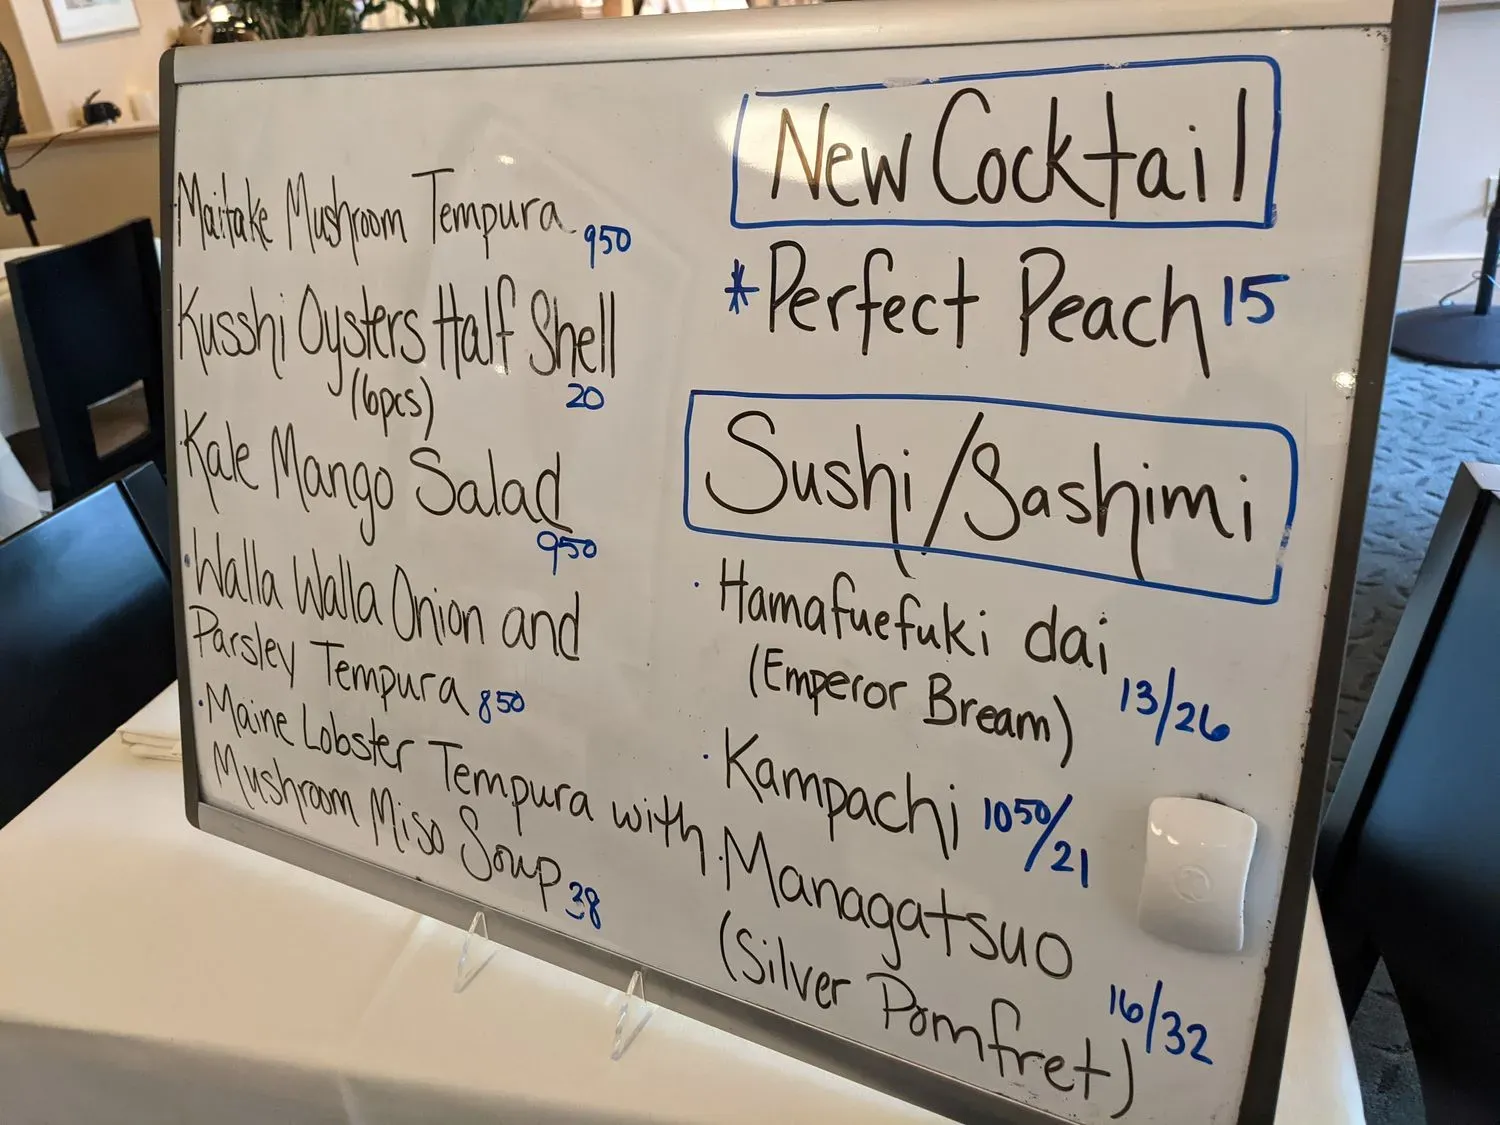 Maitake Mushroom Tempura 950
Kusshi Oysters Half Shell
(6pcs) 20
· Kale Mango Salad
950
· Walla Walla Onion and
Parsley Tempura 850
· Maine Lobster Tempura with
Mushroom Miso Soup 38
New Cocktail
* Perfect Peach 15
Sushi/Sashimi
· Hamafuefuki dai
(Emperor Bream) 13/26
· Kampachi 1050/21
· Managatsuo
(Silver Pomfret) 16/32